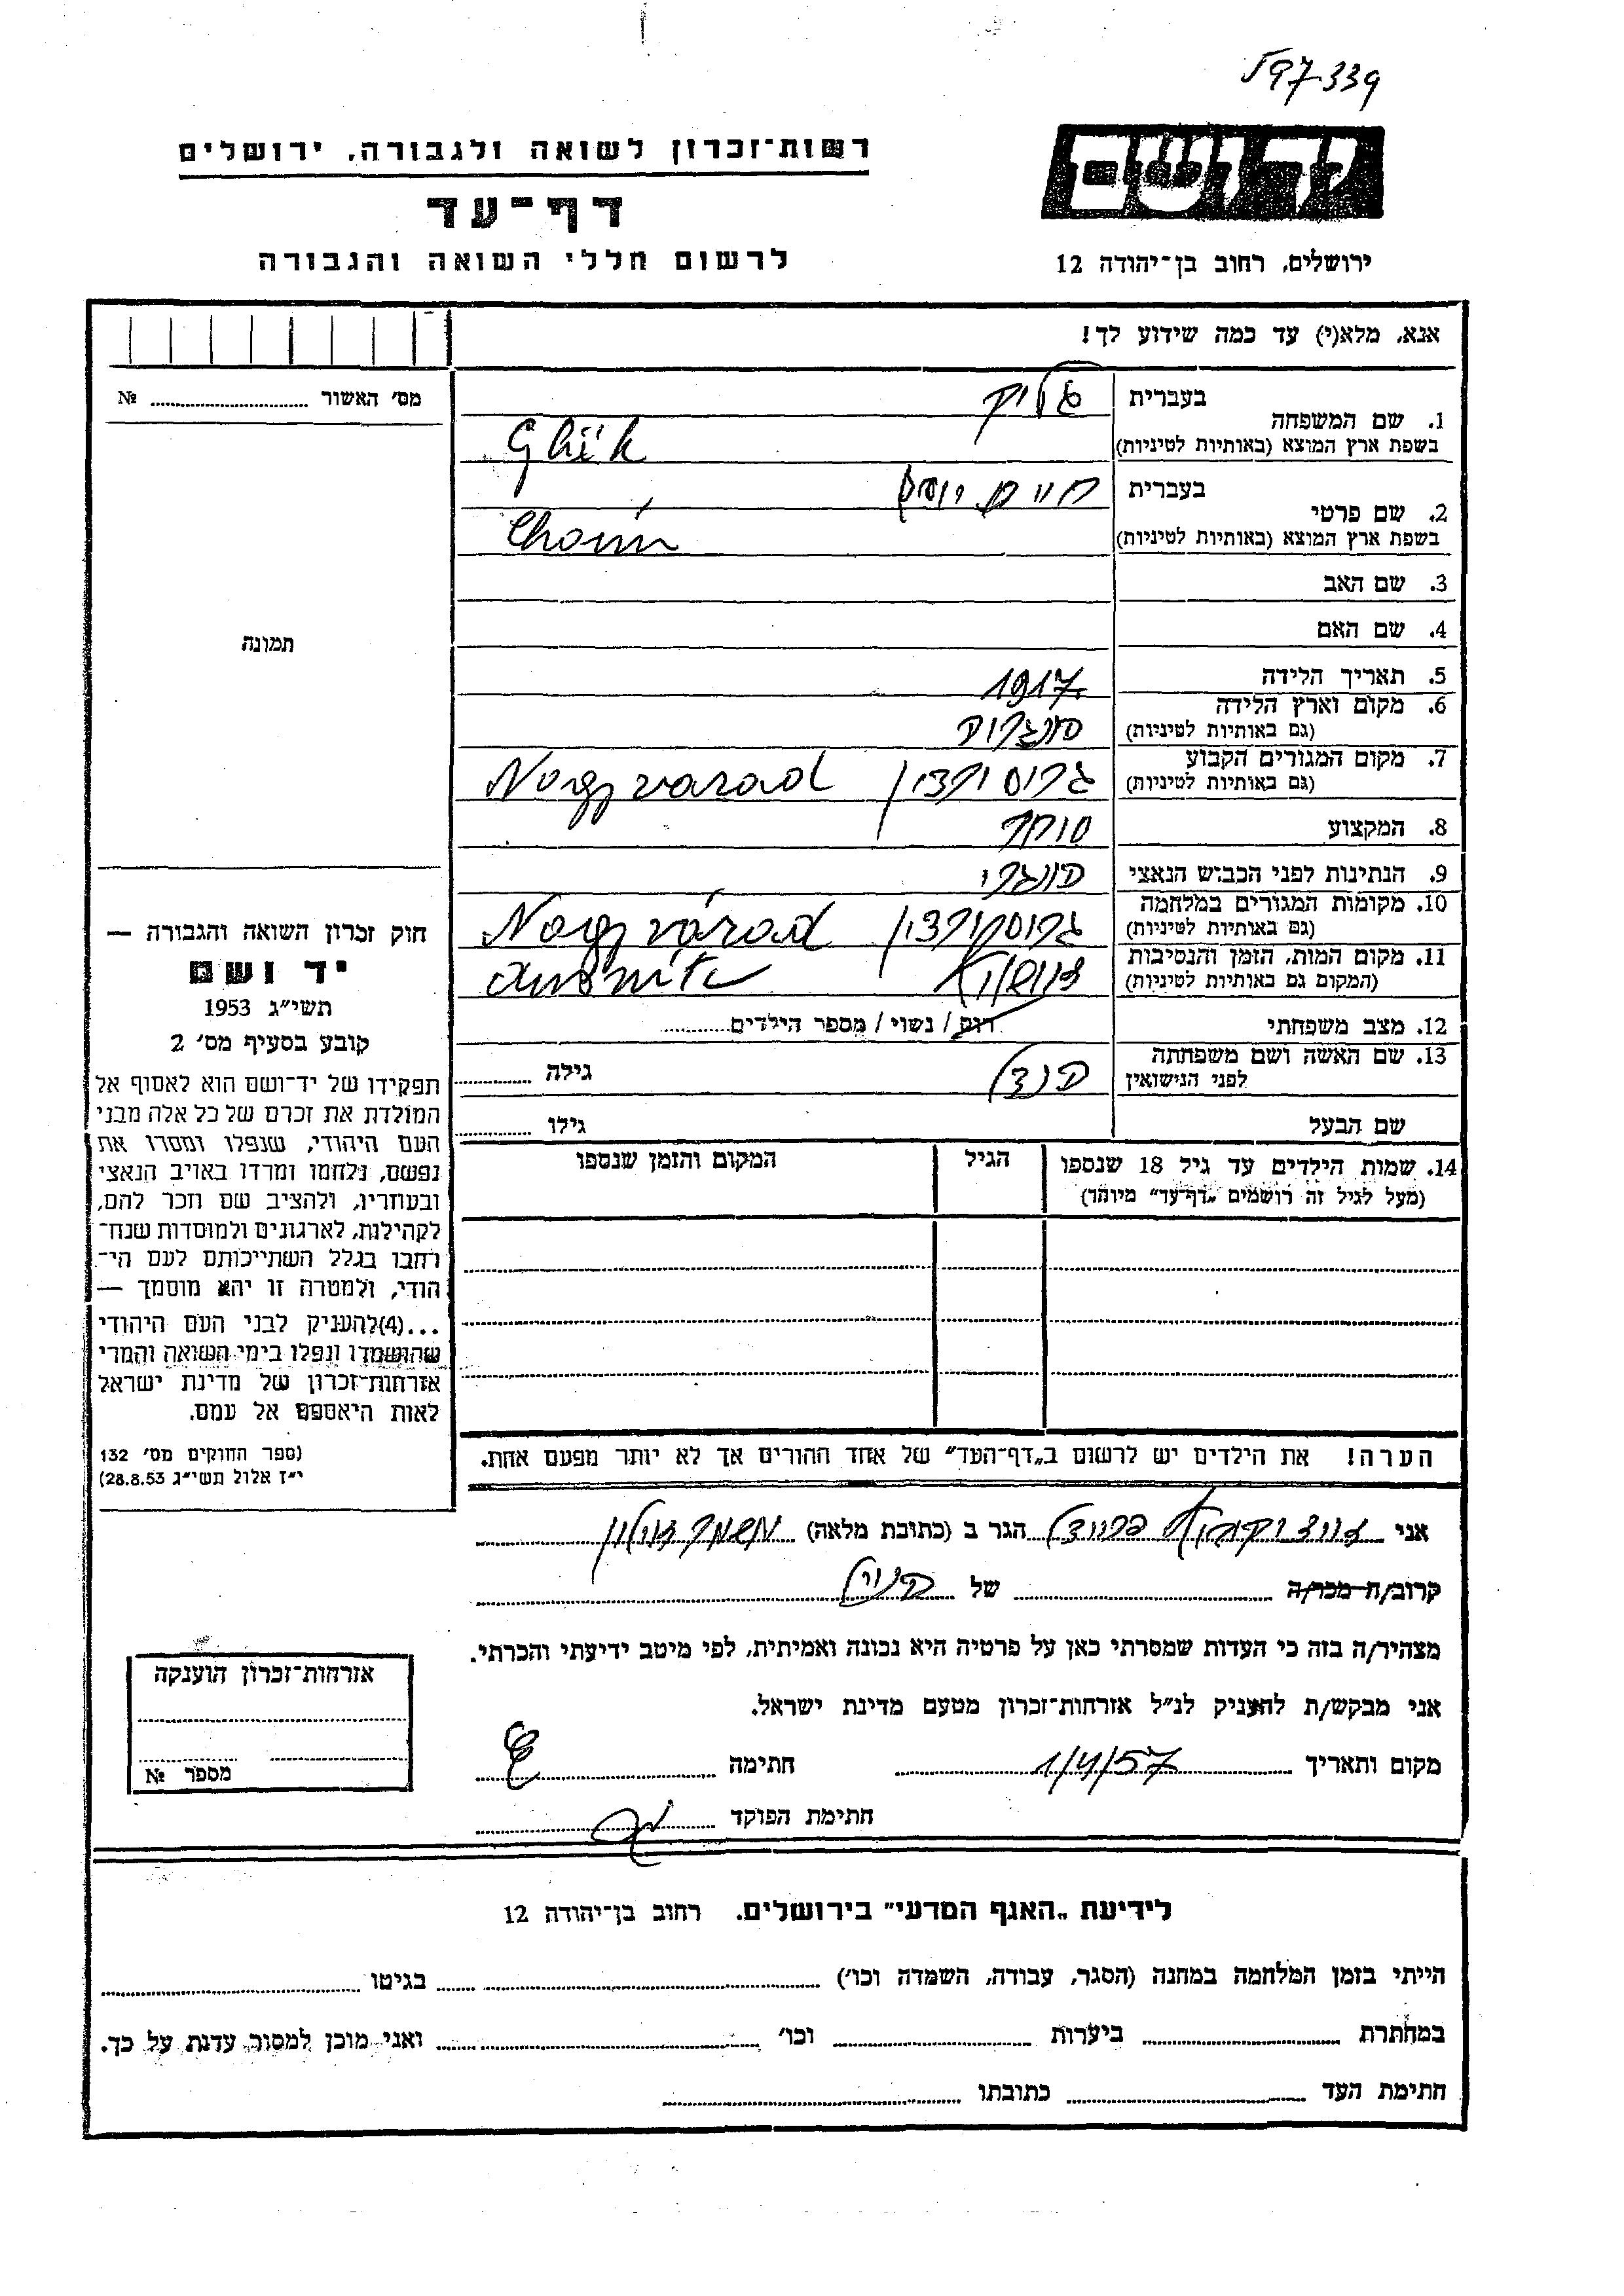 597-339
רשות־זכרון לשואה ולגבורה, ירושלים
יד ושם
דף־עד
לרשום חללי השואה והגבורה
ירושלים, רחוב בן־יהודה 12
אנא, מלא(י) עד כמה שידוע לך!
מס׳ האשור ............ №
תמונה
1. שם המשפחה
בעברית גליק
בשפת ארץ המוצא (באותיות לטיניות) Glük
2. שם פרטי
בעברית חיים יוסף
בשפת ארץ המוצא (באותיות לטיניות) Choim
3. שם האב
4. שם האם
5. תאריך הלידה 1917
6. מקום וארץ הלידה
(גם באותיות לטיניות)
7. מקום המגורים הקבוע גרוסורדין Nagyvarad
(גם באותיות לטיניות)
8. המקצוע סוחר
9. הנתינות לפני הכבוש הנאצי הונגרי
10. מקומות המגורים במלחמה גרוסורדין Nagyvárad
(גם באותיות לטיניות)
11. מקום המות, הזמן והנסיבות אושויץ
(המקום גם באותיות לטיניות)
12. מצב משפחתי רוק / נשוי / מספר הילדים............
13. שם האשה ושם משפחתה
לפני הנישואין
גילה ............
שם הבעל גילו ............
14. שמות הילדים עד גיל 18 שנספו הגיל המקום והזמן שנספו
(מעל לגיל זה רושמים „דף־עד״ מיוחד)
הערה! את הילדים יש לרשום ב„דף־העד״ של אחד ההורים אך לא יותר מפעם אחת.
חוק זכרון השואה והגבורה —
יד ושם
תשי״ג 1953
קובע בסעיף מס׳ 2
תפקידו של יד־ושם הוא לאסוף אל
המולדת את זכרם של כל אלה מבני
העם היהודי, שנפלו ומסרו את
נפשם, נלחמו ומרדו באויב הנאצי
ובעוזריו, ולהציב שם וזכר להם,
לקהילות, לארגונים ולמוסדות שנח־
רחבו בגלל השתייכותם לעם הי־
הודי, ולמטרה זו יהא מוסמך —
...(4)להעניק לבני העם היהודי
שהושמדו ונפלו בימי השואה והמרי
אזרחות־זכרון של מדינת ישראל
לאות היאספם אל עמם.
(ספר החוקים מס׳ 132
י״ז אלול תשי״ג 28.8.53)
אני הגר ב (כתובת מלאה)
קרוב/ה מכר/ה ............ של ............
מצהיר/ה בזה כי העדות שמסרתי כאן על פרטיה היא נכונה ואמיתית, לפי מיטב ידיעתי והכרתי.
אני מבקש/ת להעניק לנ״ל אזרחות־זכרון מטעם מדינת ישראל.
מקום ותאריך 1/4/57 חתימה
חתימת הפוקד
אזרחות־זכרון הוענקה
מספר №
לידיעת „האגף המדעי״ בירושלים. רחוב בן־יהודה 12
הייתי בזמן המלחמה במחנה (הסגר, עבודה, השמדה וכו׳) ............ בגיטו ............
במחתרת ............ ביערות ............ וכו׳ ............ ואני מוכן למסור עדות על כך.
חתימת העד ............ כתובתו ............